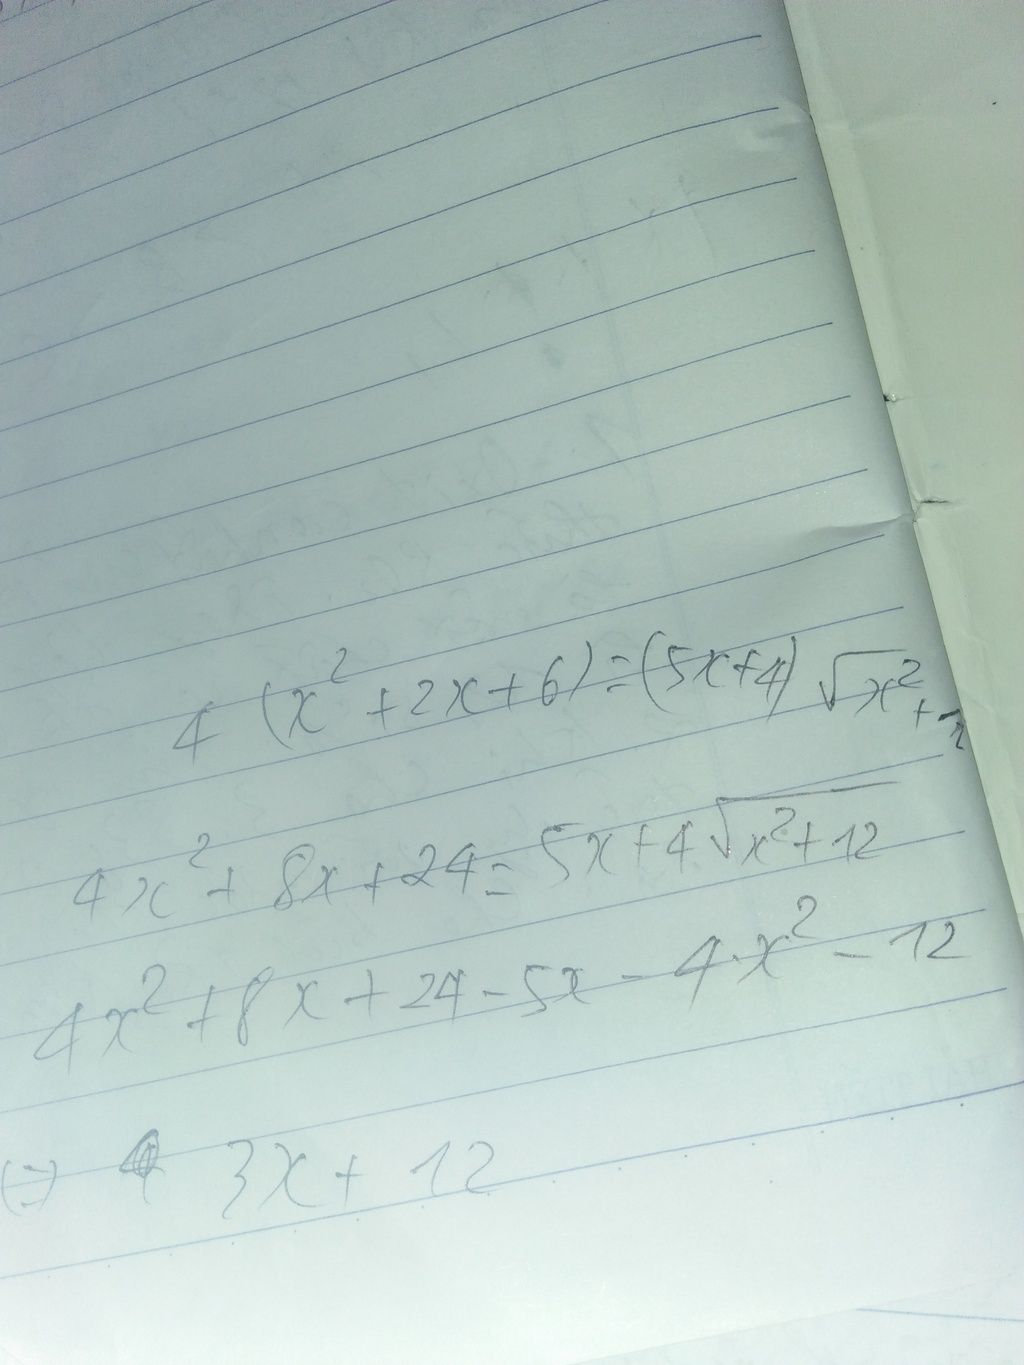 4 (x² + 2x + 6) = (5x+4) √x² +
4x² + 8x + 24 = 5x + 4√x² + 12
4x² + 8x + 24 - 5x - 4.x² - 12
(=) 3x + 12